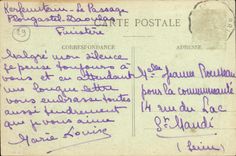 Kerfentram - Le Passage
Plougastel Daoulas
Finistère
CARTE POSTALE
CORRESPONDANCE
Malgré mon silence
je pense toujours à
vous et en attendant
une longue lettre
vous embrasse toutes
aussi tendrement
que je vous aime
Marie Louise
Melle Jeanne Rousseau
pour la communauté
14 rue du Lac
St Mandé
(Seine)